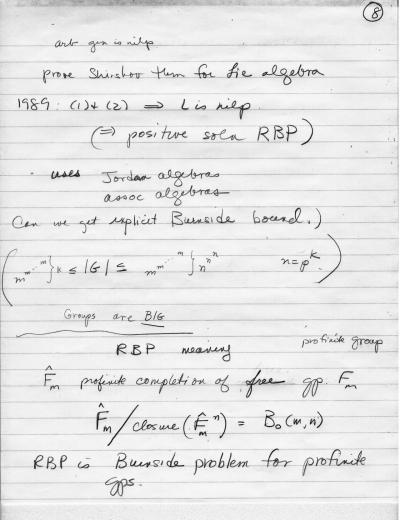 8
arb gen is nilp.
prove Shirshov thm for Lie algebra
1989: (1)+(2) ⇒ L is nilp.
(⇒ positive soln RBP)
• uses Jordan algebras
assoc algebras
Can we get explicit Burnside bound.)
(m^{m^{⋰^{m}}}}k ≤ |G| ≤ m^{m^{⋰^{m}}}}n^{n^{n}} n=p^k.)
Groups are BIG
RBP meaning profinite group
F̂_m profinite completion of free gp. F_m
F̂_m / closure(F̂_m^n) = B_0(m,n)
RBP is Burnside problem for profinite
gps.